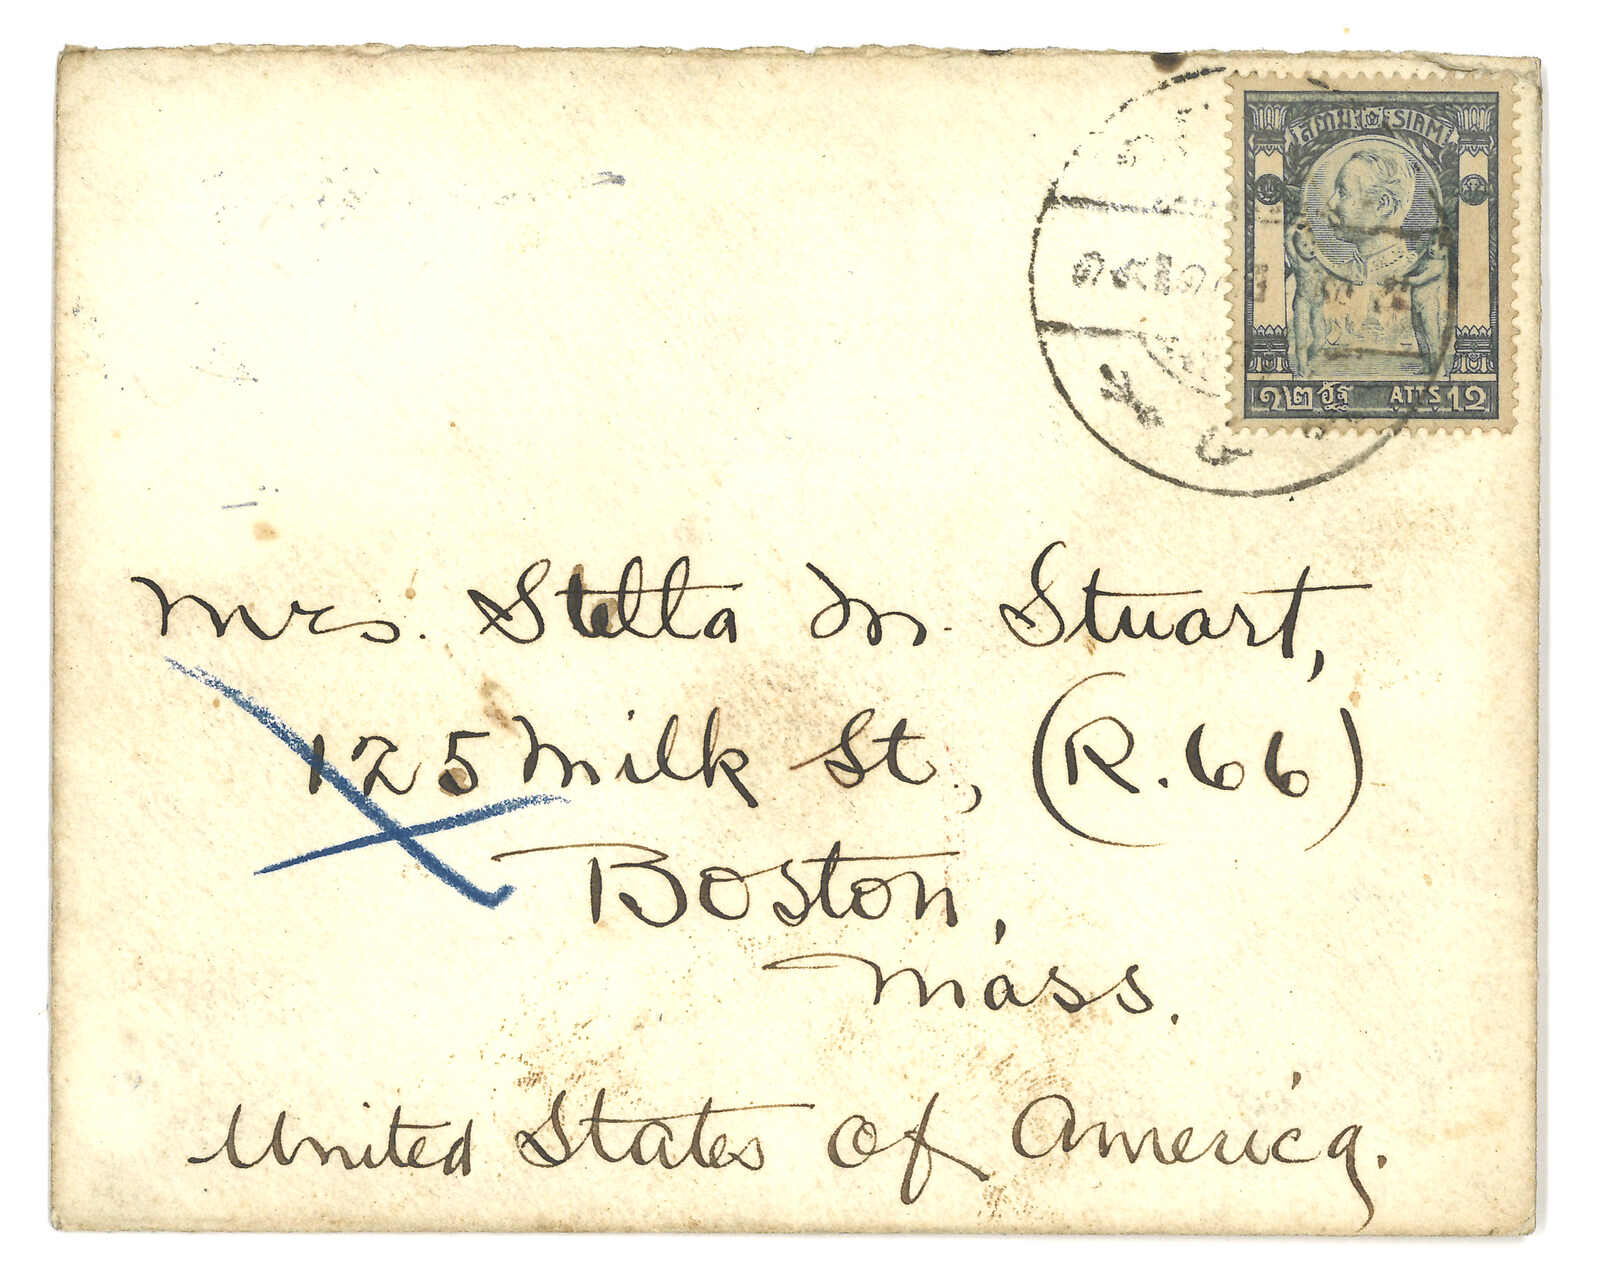 สยาม SIAM
๑๒ ๒ ๑๒ อัฐ ATTS 12
Mrs. Stella M. Stuart,
125 Milk St., (R. 66)
Boston,
Mass.
United States of America.